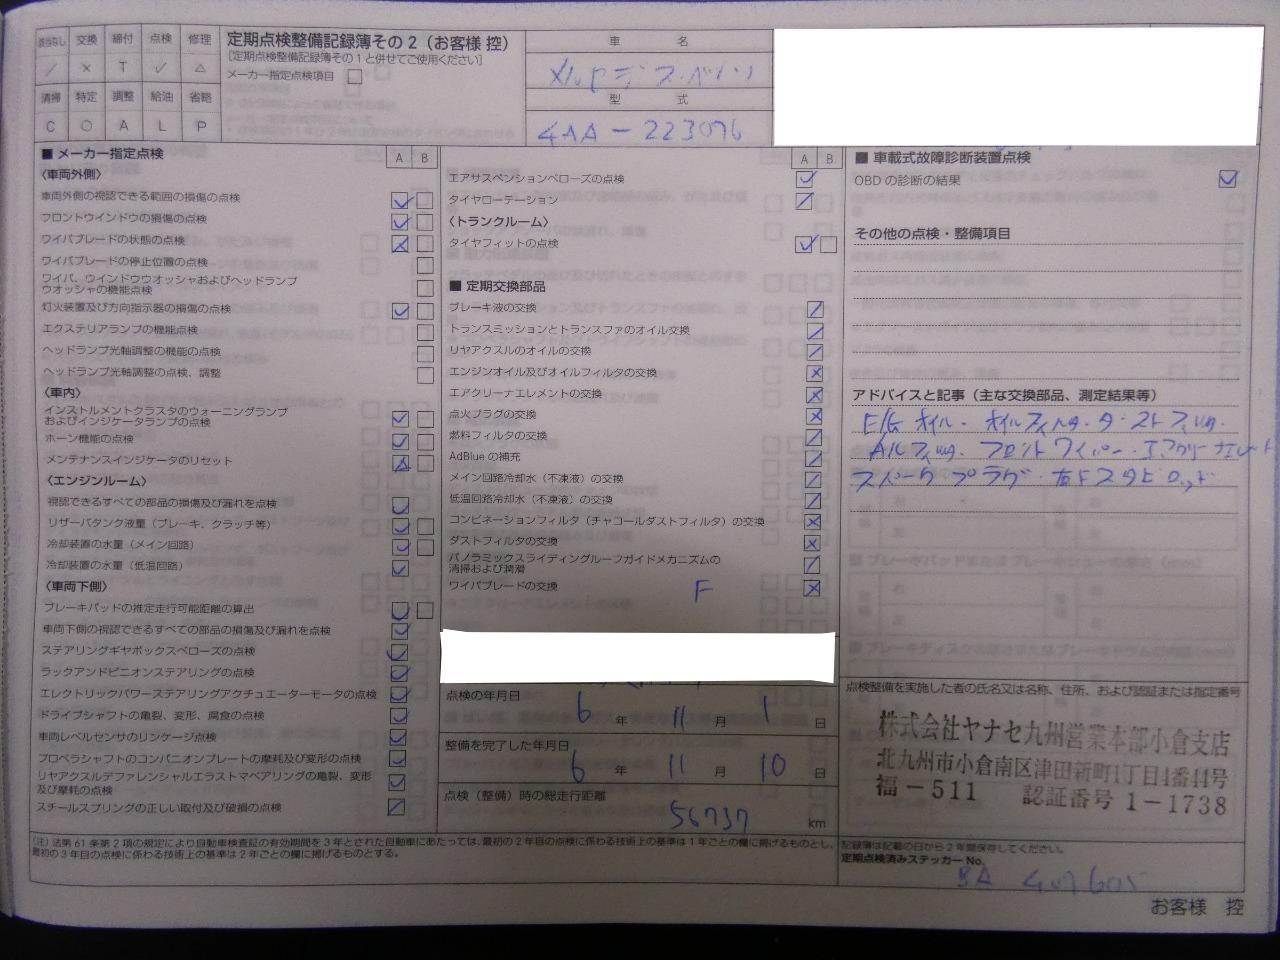 該当なし 交換 締付 点検 修理
／ × T ✓ △
清掃 特定 調整 給油 省略
C ○ A L P
定期点検整備記録簿その2（お客様 控）
［定期点検整備記録簿その1と併せてご使用ください］
メーカー指定点検項目 □
車 名
メルセデス・ベンツ
型 式
4AA-223076
■ メーカー指定点検
A B
〈車両外側〉
車両外側の視認できる範囲の損傷の点検
フロントウインドウの損傷の点検
ワイパブレードの状態の点検
ワイパブレードの停止位置の点検
ワイパ、ウインドウウオッシャおよびヘッドランプ
ウオッシャの機能点検
灯火装置及び方向指示器の損傷の点検
エクステリアランプの機能点検
ヘッドランプ光軸調整の機能の点検
ヘッドランプ光軸調整の点検、調整
〈車内〉
インストルメントクラスタのウォーニングランプ
およびインジケータランプの点検
ホーン機能の点検
メンテナンスインジケータのリセット
〈エンジンルーム〉
視認できるすべての部品の損傷及び漏れを点検
リザーバタンク液量（ブレーキ、クラッチ等）
冷却装置の水量（メイン回路）
冷却装置の水量（低温回路）
〈車両下側〉
ブレーキパッドの推定走行可能距離の算出
車両下側の視認できるすべての部品の損傷及び漏れを点検
ステアリングギヤボックスベローズの点検
ラックアンドピニオンステアリングの点検
エレクトリックパワーステアリングアクチュエーターモータの点検
ドライブシャフトの亀裂、変形、腐食の点検
車両レベルセンサのリンケージ点検
プロペラシャフトのコンパニオンプレートの摩耗及び変形の点検
リヤアクスルデファレンシャルエラストマベアリングの亀裂、変形
及び摩耗の点検
スチールスプリングの正しい取付及び破損の点検
A B
エアサスペンションベローズの点検
タイヤローテーション
〈トランクルーム〉
タイヤフィットの点検
■ 定期交換部品
ブレーキ液の交換
トランスミッションとトランスファのオイル交換
リヤアクスルのオイルの交換
エンジンオイル及びオイルフィルタの交換
エアクリーナエレメントの交換
点火プラグの交換
燃料フィルタの交換
AdBlue の補充
メイン回路冷却水（不凍液）の交換
低温回路冷却水（不凍液）の交換
コンビネーションフィルタ（チャコールダストフィルタ）の交換
ダストフィルタの交換
パノラミックスライディングルーフガイドメカニズムの
清掃および潤滑
ワイパブレードの交換 F
点検の年月日
6 年 11 月 1 日
整備を完了した年月日
6 年 11 月 10 日
点検（整備）時の総走行距離
56737 km
■ 車載式故障診断装置点検
OBD の診断の結果
その他の点検・整備項目
アドバイスと記事（主な交換部品、測定結果等）
E/G オイル・オイルフィルター・ダストフィルター
フロントワイパー・エアクリーナエレメント
スパークプラグ・
点検整備を実施した者の氏名又は名称、住所、および認証または指定番号
株式会社ヤナセ九州営業本部小倉支店
北九州市小倉南区津田新町1丁目4番44号
福－511 認証番号 1－1738
記録簿は記載の日から2年間保存してください。
定期点検済みステッカーNo.
（注）法第61条第2項の規定により自動車検査証の有効期間を3年とされた自動車にあたっては、最初の2年目の点検に係わる技術上の基準は1年ごとの欄に掲げるものとし、
最初の3年目の点検に係わる技術上の基準は2年ごとの欄に掲げるものとする。
お客様 控